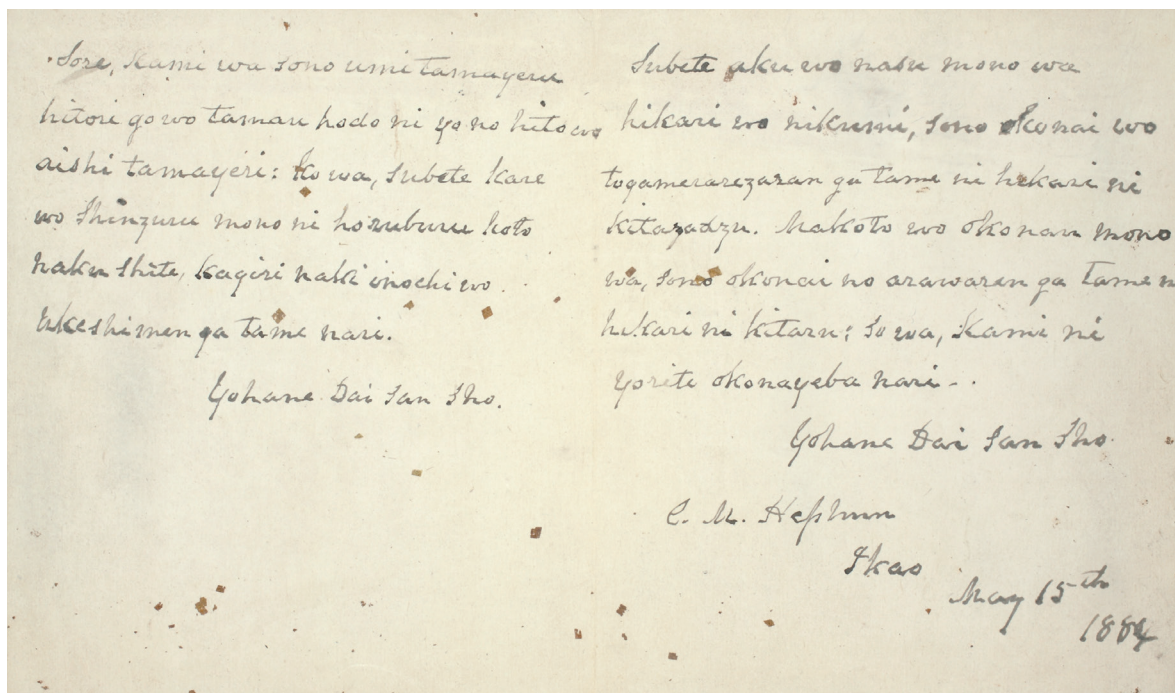 Sore, Kami wa sono umi tamayeru
hitori go wo tamau hodo ni yo no hito wo
aishi tamayeri: Ko wa, subete kare
wo shinzuru mono ni horuburu koto
naku shite, kagiri naki inochi wo
ukeshimen ga tame nari.
Yohane Dai San Sho.
Subete aku wo nasu mono wa
hikari wo nikumi, sono okonai wo
togamerarezaran ga tame ni hikari ni
kitaradzu. Makoto wo okonau mono
wa, sono okonai no arawaren ga tame n
hikari ni kitaru: So wa, Kami ni
yorite okonayeba nari -.
Yohane Dai San Sho.
C. M. Hepburn
Ikao
May 15th
1884